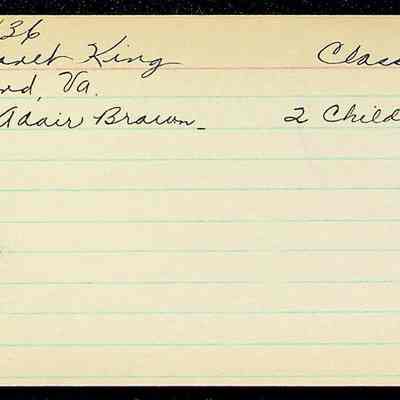 36
aret King Class
nd, Va.
Adair Brown 2 Child